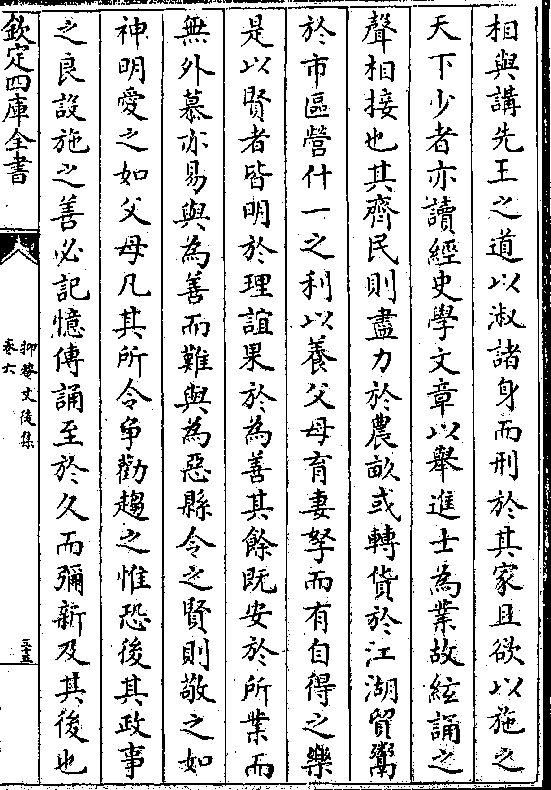 相與講先王之道以淑諸身而刑於其家且欲以施之
天下少者亦讀經史學文章以舉進士為業故絃誦之
聲相接也其齊民則盡力於農畝或轉貨於江湖貿鬻
於市區營什一之利以養父母育妻孥而有自得之樂
是以賢者皆明於理誼果於為善其餘既安於所業而
無外慕亦易與為善而難與為惡縣令之賢則敬之如
神明愛之如父母凡其所令争勸趨之惟恐後其政事
之良設施之善必記憶傳誦至於久而彌新及其後也
欽定四庫全書
抑菴文後集
卷六
三十五